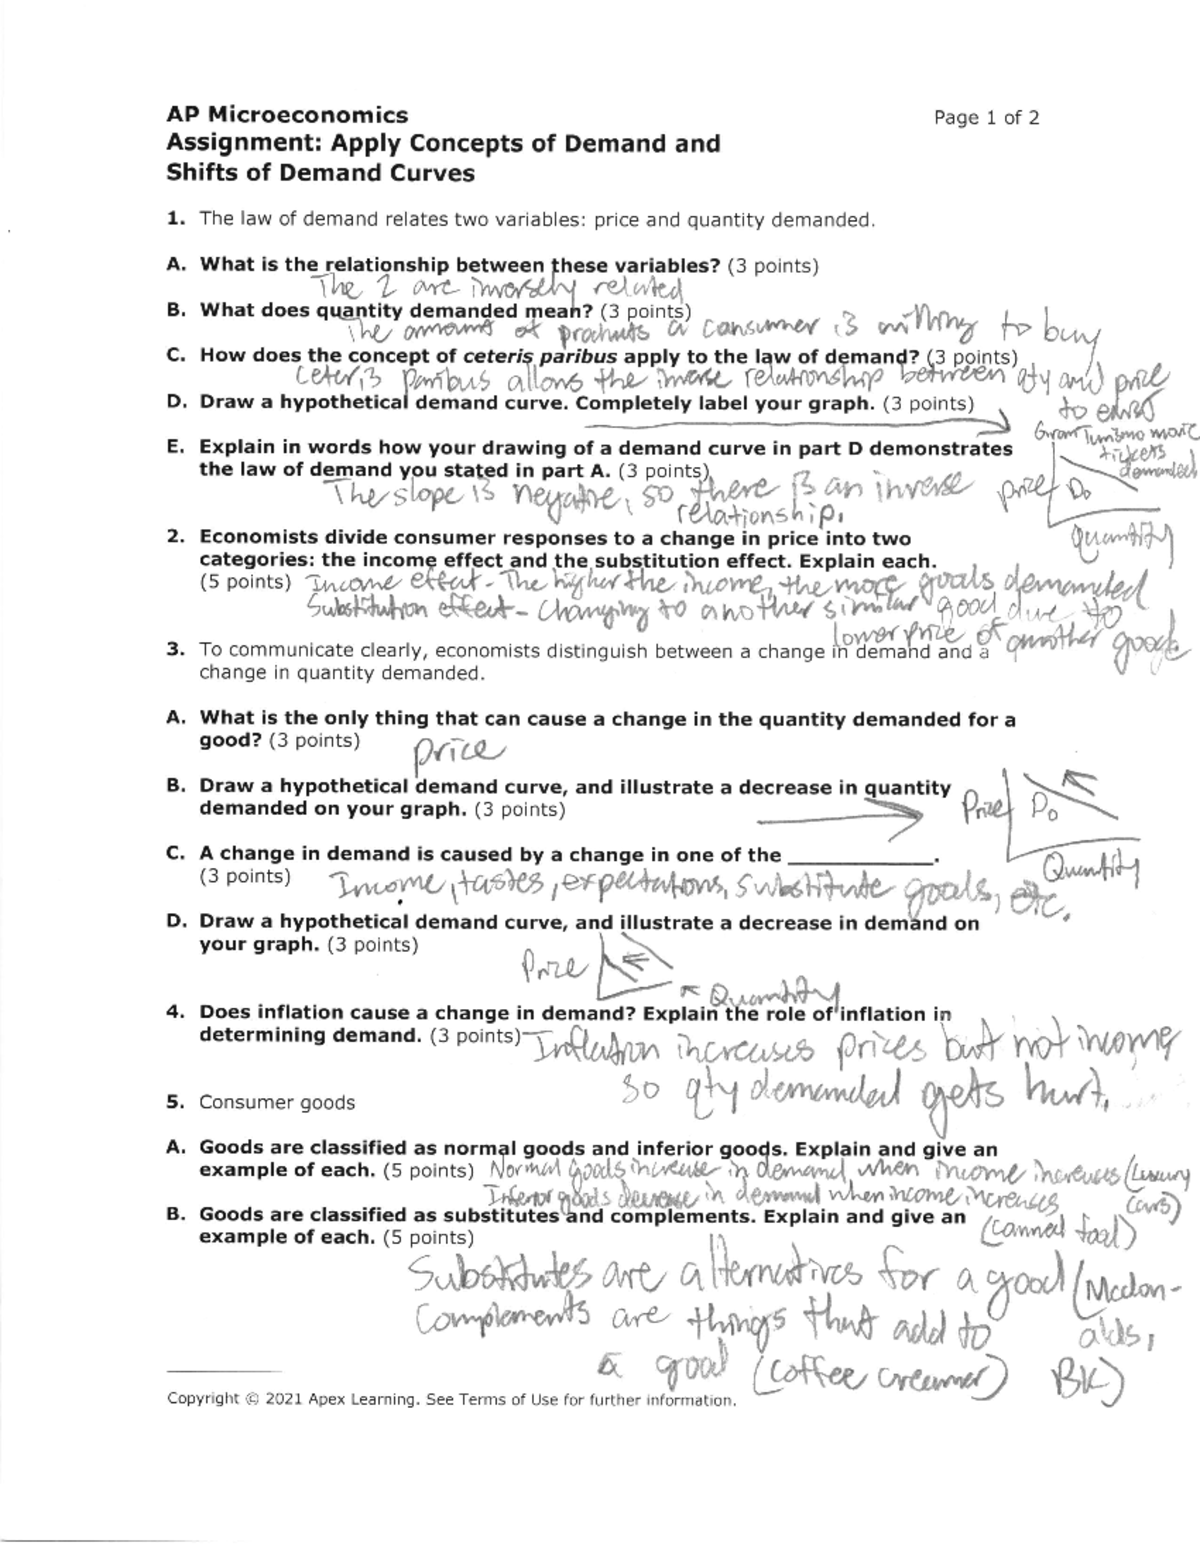 AP Microeconomics
Page 1 of 2
Assignment: Apply Concepts of Demand and
Shifts of Demand Curves
1. The law of demand relates two variables: price and quantity demanded.
A. What is the relationship between these variables? (3 points)
The 2 are inversely related
B. What does quantity demanded mean? (3 points)
The amount of products a consumer is willing to buy
C. How does the concept of ceteris paribus apply to the law of demand? (3 points)
Ceteris paribus allows the inverse relationship between qty and price
to exist
D. Draw a hypothetical demand curve. Completely label your graph. (3 points)
Gran Turismo movie
tickets
demanded
E. Explain in words how your drawing of a demand curve in part D demonstrates
the law of demand you stated in part A. (3 points)
The slope is negative, so there is an inverse
relationship.
price
D0
Quantity
2. Economists divide consumer responses to a change in price into two
categories: the income effect and the substitution effect. Explain each.
(5 points) Income effect - The higher the income, the more goods demanded
Substitution effect - Changing to another similar good due to
lower price of another good
3. To communicate clearly, economists distinguish between a change in demand and a
change in quantity demanded.
A. What is the only thing that can cause a change in the quantity demanded for a
good? (3 points)
price
B. Draw a hypothetical demand curve, and illustrate a decrease in quantity
demanded on your graph. (3 points)
Price
D0
Quantity
C. A change in demand is caused by a change in one of the ____________.
(3 points) Income, tastes, expectations, substitute goods, etc.
D. Draw a hypothetical demand curve, and illustrate a decrease in demand on
your graph. (3 points)
Price
Quantity
4. Does inflation cause a change in demand? Explain the role of inflation in
determining demand. (3 points) Inflation increases prices but not income
so qty demanded gets hurt.
5. Consumer goods
A. Goods are classified as normal goods and inferior goods. Explain and give an
example of each. (5 points) Normal goods increase in demand when income increases (Luxury
cars)
Inferior goods decrease in demand when income increases
(canned food)
B. Goods are classified as substitutes and complements. Explain and give an
example of each. (5 points)
Substitutes are alternatives for a good (Mcdon-
alds,
BK)
Complements are things that add to
a good (coffee creamer)
Copyright © 2021 Apex Learning. See Terms of Use for further information.